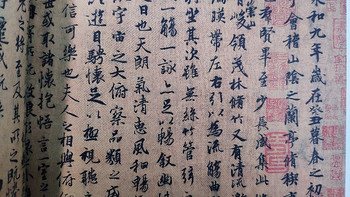 永和九年歲在癸丑暮春之初
會稽山陰之蘭亭脩稧
羣賢畢至少長咸集此
峻領茂林脩竹又有清流
暎帶左右引以為流觴曲
坐其次雖無絲竹管弦
一觴一詠亦足以暢敘幽
日也天朗氣清惠風和暢
宇宙之大俯察品類之盛
遊目騁懷足以極視聽
信可樂也夫人之相與俯
世或取諸懷抱悟言一室之